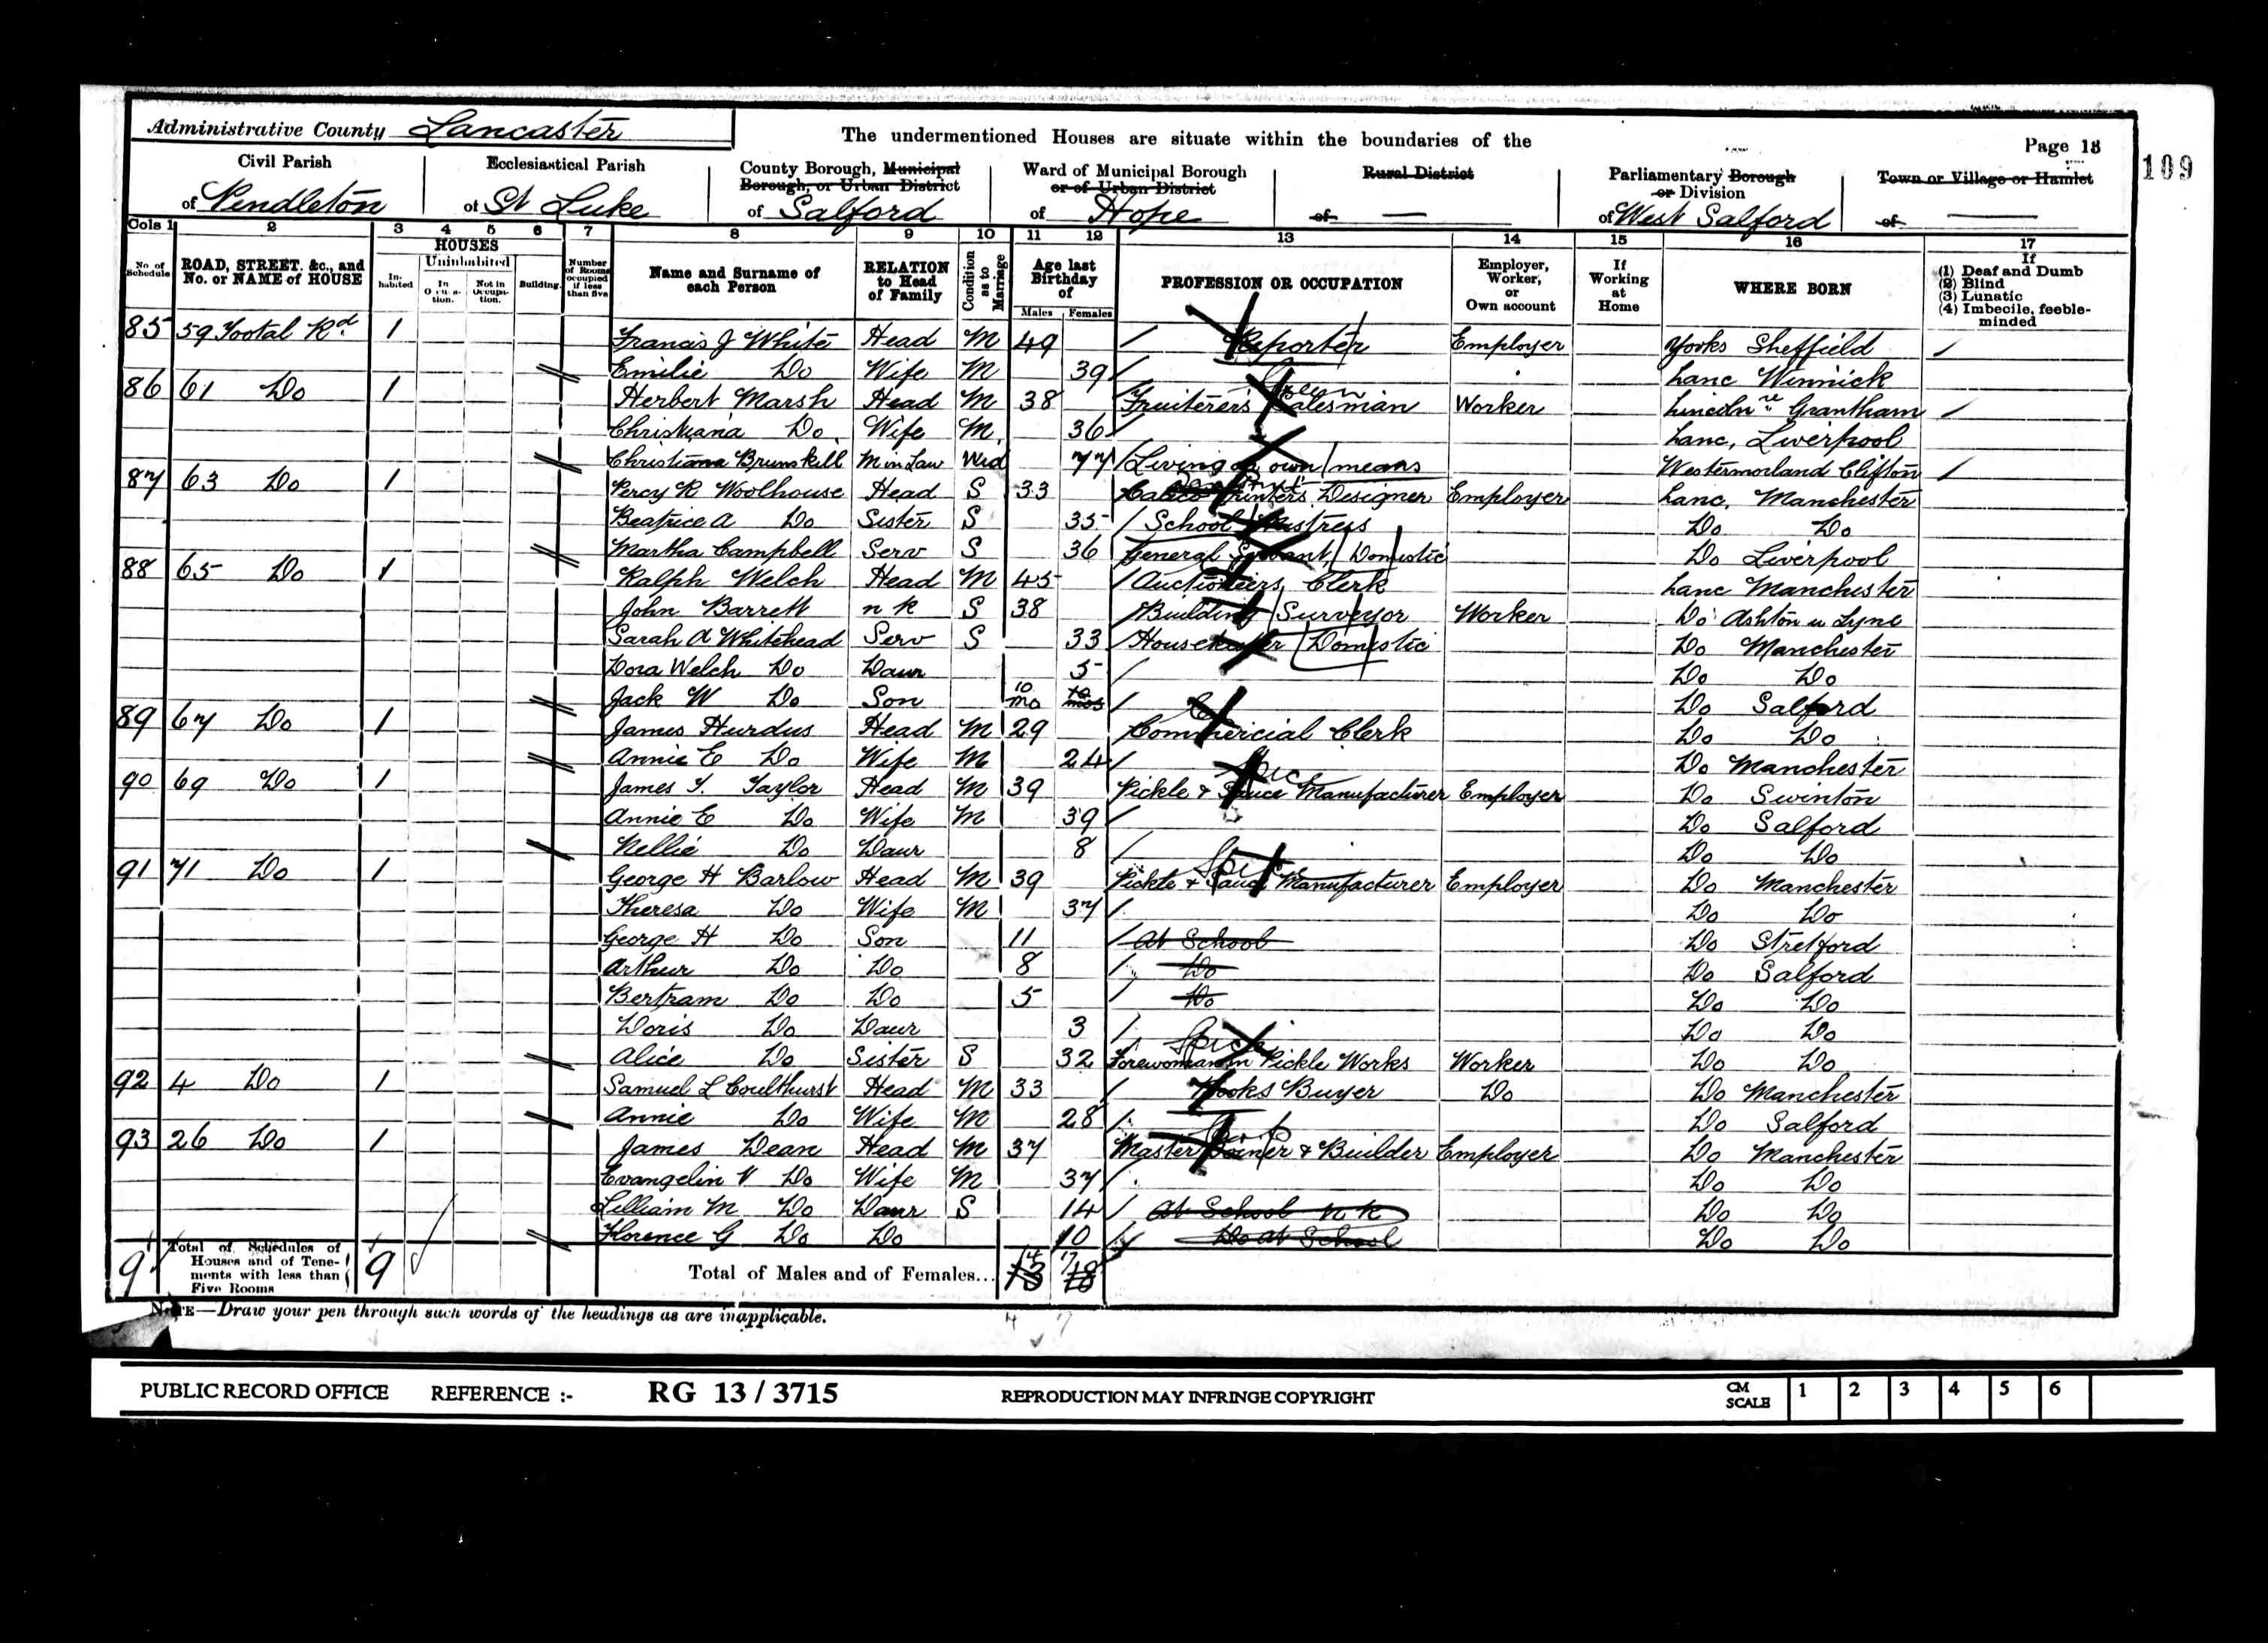 Administrative County Lancaster
The undermentioned Houses are situate within the boundaries of the
Page 13
109
Civil Parish of Pendleton
Ecclesiastical Parish of St Luke
County Borough, Municipal Borough, or Urban District of Salford
Ward of Municipal Borough or of Urban District of Hope
Rural District of —
Parliamentary Borough or Division of West Salford
Town or Village or Hamlet of —
Cols 1 2 3 4 5 6 7 8 9 10 11 12 13 14 15 16 17
No. of Schedule
ROAD, STREET, &c., and No. or NAME of HOUSE
HOUSES
Inhabited
Uninhabited
In Occupation.
Not in Occupation.
Building.
Number of Rooms occupied if less than five
Name and Surname of each Person
RELATION to Head of Family
Condition as to Marriage
Age last Birthday of
Males Females
PROFESSION OR OCCUPATION
Employer, Worker, or Own account
If Working at Home
WHERE BORN
If (1) Deaf and Dumb (2) Blind (3) Lunatic (4) Imbecile, feeble-minded
85 59 Tootal Rd 1 Francis J White Head M 49 Reporter Employer Yorks Sheffield
Emilie Do Wife M 39 Lanc Winnick
86 61 Do 1 Herbert Marsh Head M 38 Fruiterers Salesman Worker Lincolnre Grantham
Christiana Do Wife M 36 Lanc, Liverpool
Christiana Brunskill M in Law Wid 77 Living on own means Westermorland Clifton
87 63 Do 1 Percy R Woolhouse Head S 33 Calico Printers Designer Employer Lanc, Manchester
Beatrice A Do Sister S 35 School Mistress Do Do
Martha Campbell Serv S 36 General Servant, Domestic Do Liverpool
88 65 Do 1 Ralph Welch Head M 45 Auctioneers Clerk Lanc Manchester
John Barrett n k S 38 Building Surveyor Worker Do Ashton u Lyne
Sarah A Whitehead Serv S 33 Housekeeper Domestic Do Manchester
Dora Welch Do Daur 5 Do Do
Jack W Do Son 10 mo 10 mos Do Salford
89 67 Do 1 James Hurdus Head M 29 Commercial Clerk Do Do
Annie E Do Wife M 24 Do Manchester
90 69 Do 1 James T. Taylor Head M 39 Pickle & Sauce Manufacturer Employer Do Swinton
Annie E Do Wife M 39 Do Salford
Nellie Do Daur 8 Do Do
91 71 Do 1 George H Barlow Head M 39 Pickle & Sauce Manufacturer Employer Do Manchester
Theresa Do Wife M 37 Do Do
George H Do Son 11 At School Do Stretford
Arthur Do Do 8 Do Do Salford
Bertram Do Do 5 Do Do Do
Doris Do Daur 3 Do Do
Alice Do Sister S 32 Forewoman in Pickle Works Worker Do Do
92 4 Do 1 Samuel L Coulthurst Head M 33 Books Buyer Do Do Manchester
Annie Do Wife M 28 Do Salford
93 26 Do 1 James Dean Head M 37 Master Joiner & Builder Employer Do Manchester
Evangelin V Do Wife M 37 Do Do
Lilliam M Do Daur S 14 At School n k Do Do
Florence G Do Do 10 Do at School Do Do
9 Total of Schedules of Houses and of Tenements with less than Five Rooms 9 Total of Males and of Females... 14 17
NOTE—Draw your pen through such words of the headings as are inapplicable.
4 7
PUBLIC RECORD OFFICE REFERENCE :- RG 13 / 3715 REPRODUCTION MAY INFRINGE COPYRIGHT CM SCALE 1 2 3 4 5 6